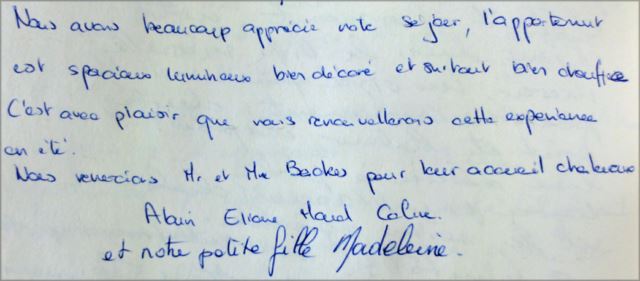 Nous avons beaucoup apprécié notre séjour, l'appartement
est spacieux lumineux bien décoré et surtout bien chauffé
C'est avec plaisir que nous renouvellerons cette expérience
en été.
Nous remercions Mr et Mme Backes pour leur accueil chaleureux
Alain Eliane Maud
et notre petite fille Madeleine.